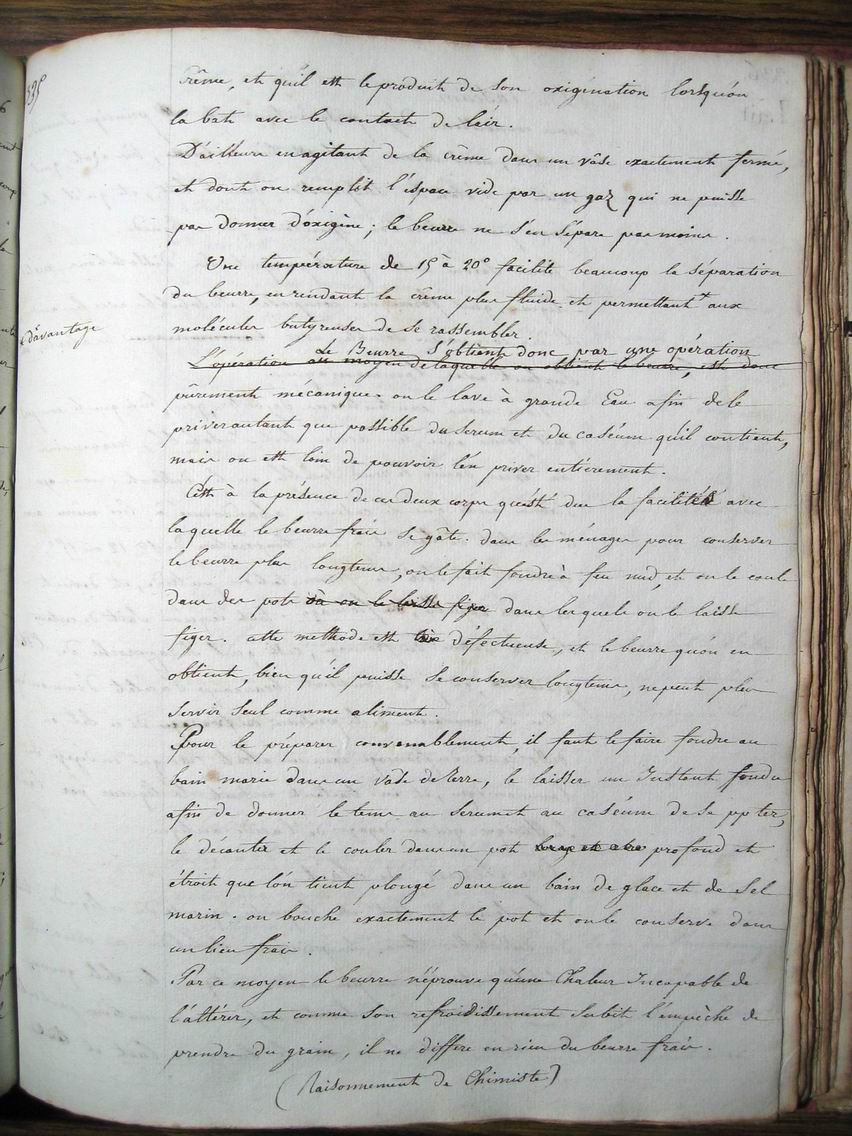 335
crême, et qu'il est le produit de son oxigénation lorsqu'on
la bat avec le contact de l'air.
D'ailleurs en agitant de la crême dans un vâse exactement fermé,
et dont on remplit l'espace vide par un gaz qui ne puisse
pas donner d'oxigène; le beurre ne s'en sépare pas moins.
Une température de 15 à 20° facilite beaucoup la séparation
du beurre, en rendant la crême plus fluide et permettant aux
d'avantage
molécules butyreuses de se rassembler.
Le Beurre s'obtient donc par une opération
L'opération au moyen de laquelle on obtient le beurre, est donc
purement mécanique. on le lave à grande Eau afin de le
priver autant que possible du serum et du caséum qu'il contient,
mais on est loin de pouvoir l'en priver entièrement.
C'est à la présence de ces deux corps qu'est due la facilité avec
laquelle le beurre frais se gâte. dans les ménages pour conserver
le beurre plus longtems, on le fait fondre à feu nud, et on le coule
dans des pots où on le laisse figer dans lesquels on le laisse
figer. cette methode est très défectueuse, et le beurre qu'on en
obtient, bien qu'il puisse se conserver longtems, ne peut plus
servir seul comme aliment.
Pour le préparer convenablement il faut le faire fondre au
bain marie dans un vase de terre, le laisser un Instant fondu
afin de donner le tems au serum et au caséum de se ppter,
le décanter et le couler dans un pot profond et
étroit que l'on tient plongé dans un bain de glace et de sel
marin. on bouche exactement le pot et on le conserve dans
un lieu frais.
Par ce moyen le beurre n'éprouve qu'une Chaleur Incapable de
l'altérer, et comme son refroidissement subit l'empêche de
prendre du grain, il ne differe en rien du beurre frais.
(Raisonnement de Chimiste)